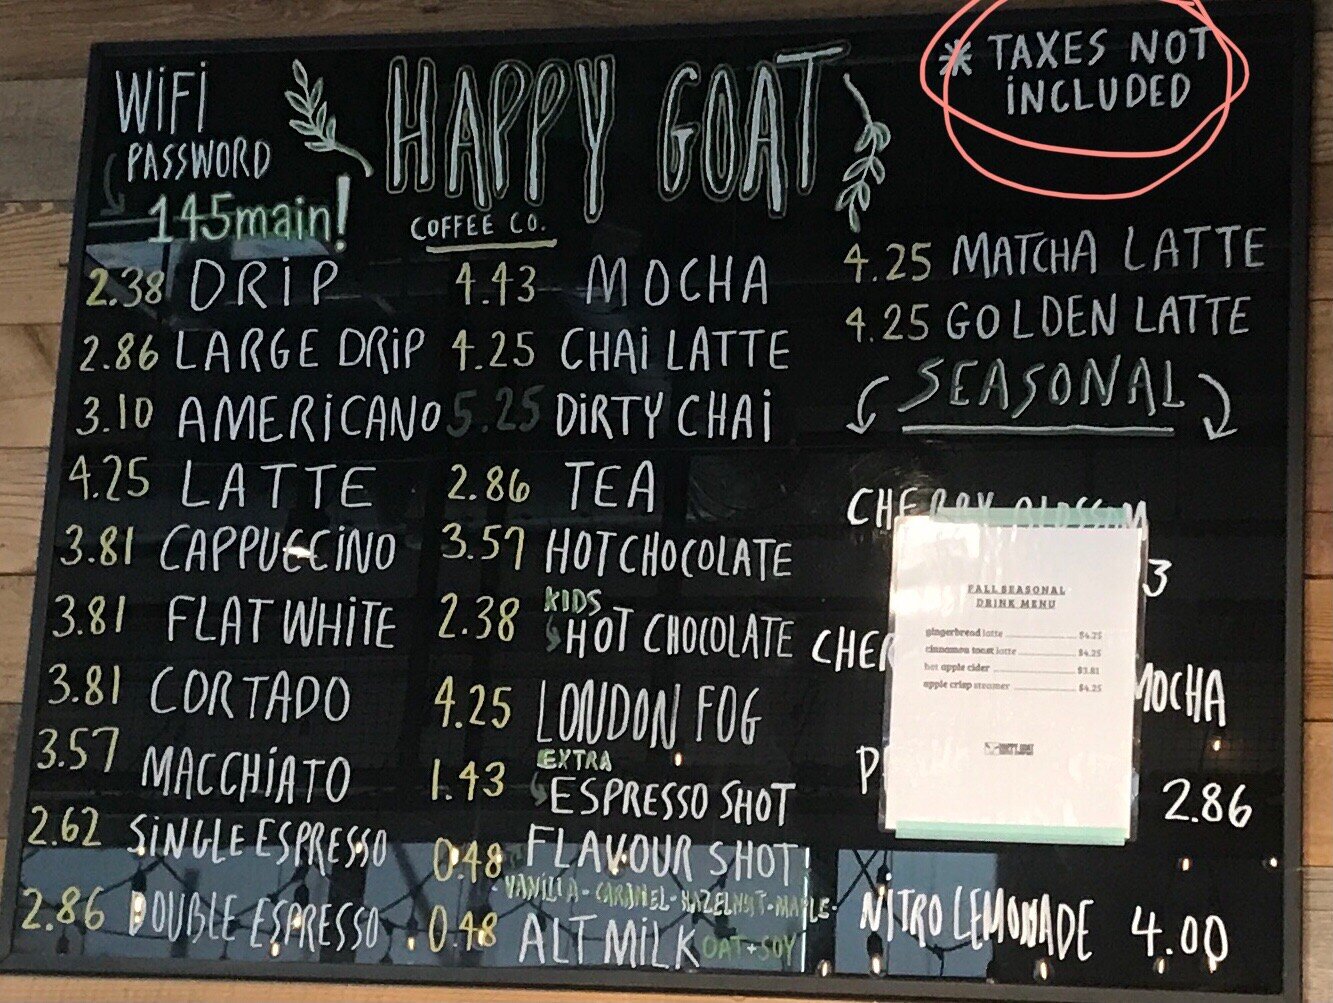 WiFi
PASSWORD
145main!
HAPPY GOAT
COFFEE CO.
* TAXES NOT
iNCLUDED
2.38 DRiP
2.86 LARGE DRiP
3.10 AMERiCANO
4.25 LATTE
3.81 CAPPUCCiNO
3.81 FLAT WHiTE
3.81 CORTADO
3.57 MACCHiATO
2.62 SiNGLE ESPRESSO
2.86 DOUBLE ESPRESSO
4.43 MOCHA
4.25 CHAi LATTE
5.25 DiRTY CHAi
2.86 TEA
3.57 HOT CHOCOLATE
KIDS
2.38 HOT CHOCOLATE
4.25 LONDON FOG
EXTRA
1.43 ESPRESSO SHOT
0.48 FLAVOUR SHOT
- VANILLA - CARAMEL - HAZELNUT - MAPLE -
0.48 ALT MiLK OAT + SOY
4.25 MATCHA LATTE
4.25 GOLDEN LATTE
SEASONAL
CHERRY BLOSSOM
3
FALL SEASONAL
DRINK MENU
gingerbread latte $4.25
cinnamon toast latte $4.25
hot apple cider $3.81
apple crisp steamer $4.25
CHER
MOCHA
2.86
NiTRO LEMONADE 4.00